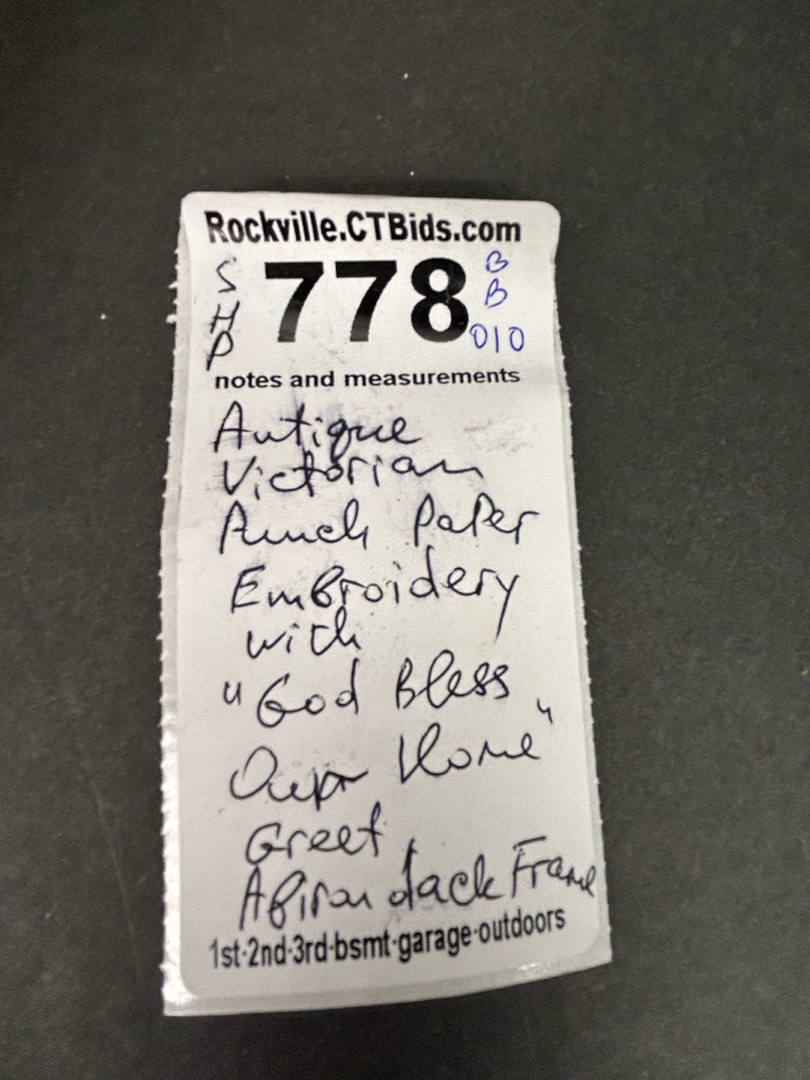 Rockville.CTBids.com
SHP 778 BB 010
notes and measurements
Antique
Victorian
Punch Paper
Embroidery
with
"God Bless
Our Home"
Greet,
Adirondack Frame
1st·2nd·3rd·bsmt·garage·outdoors